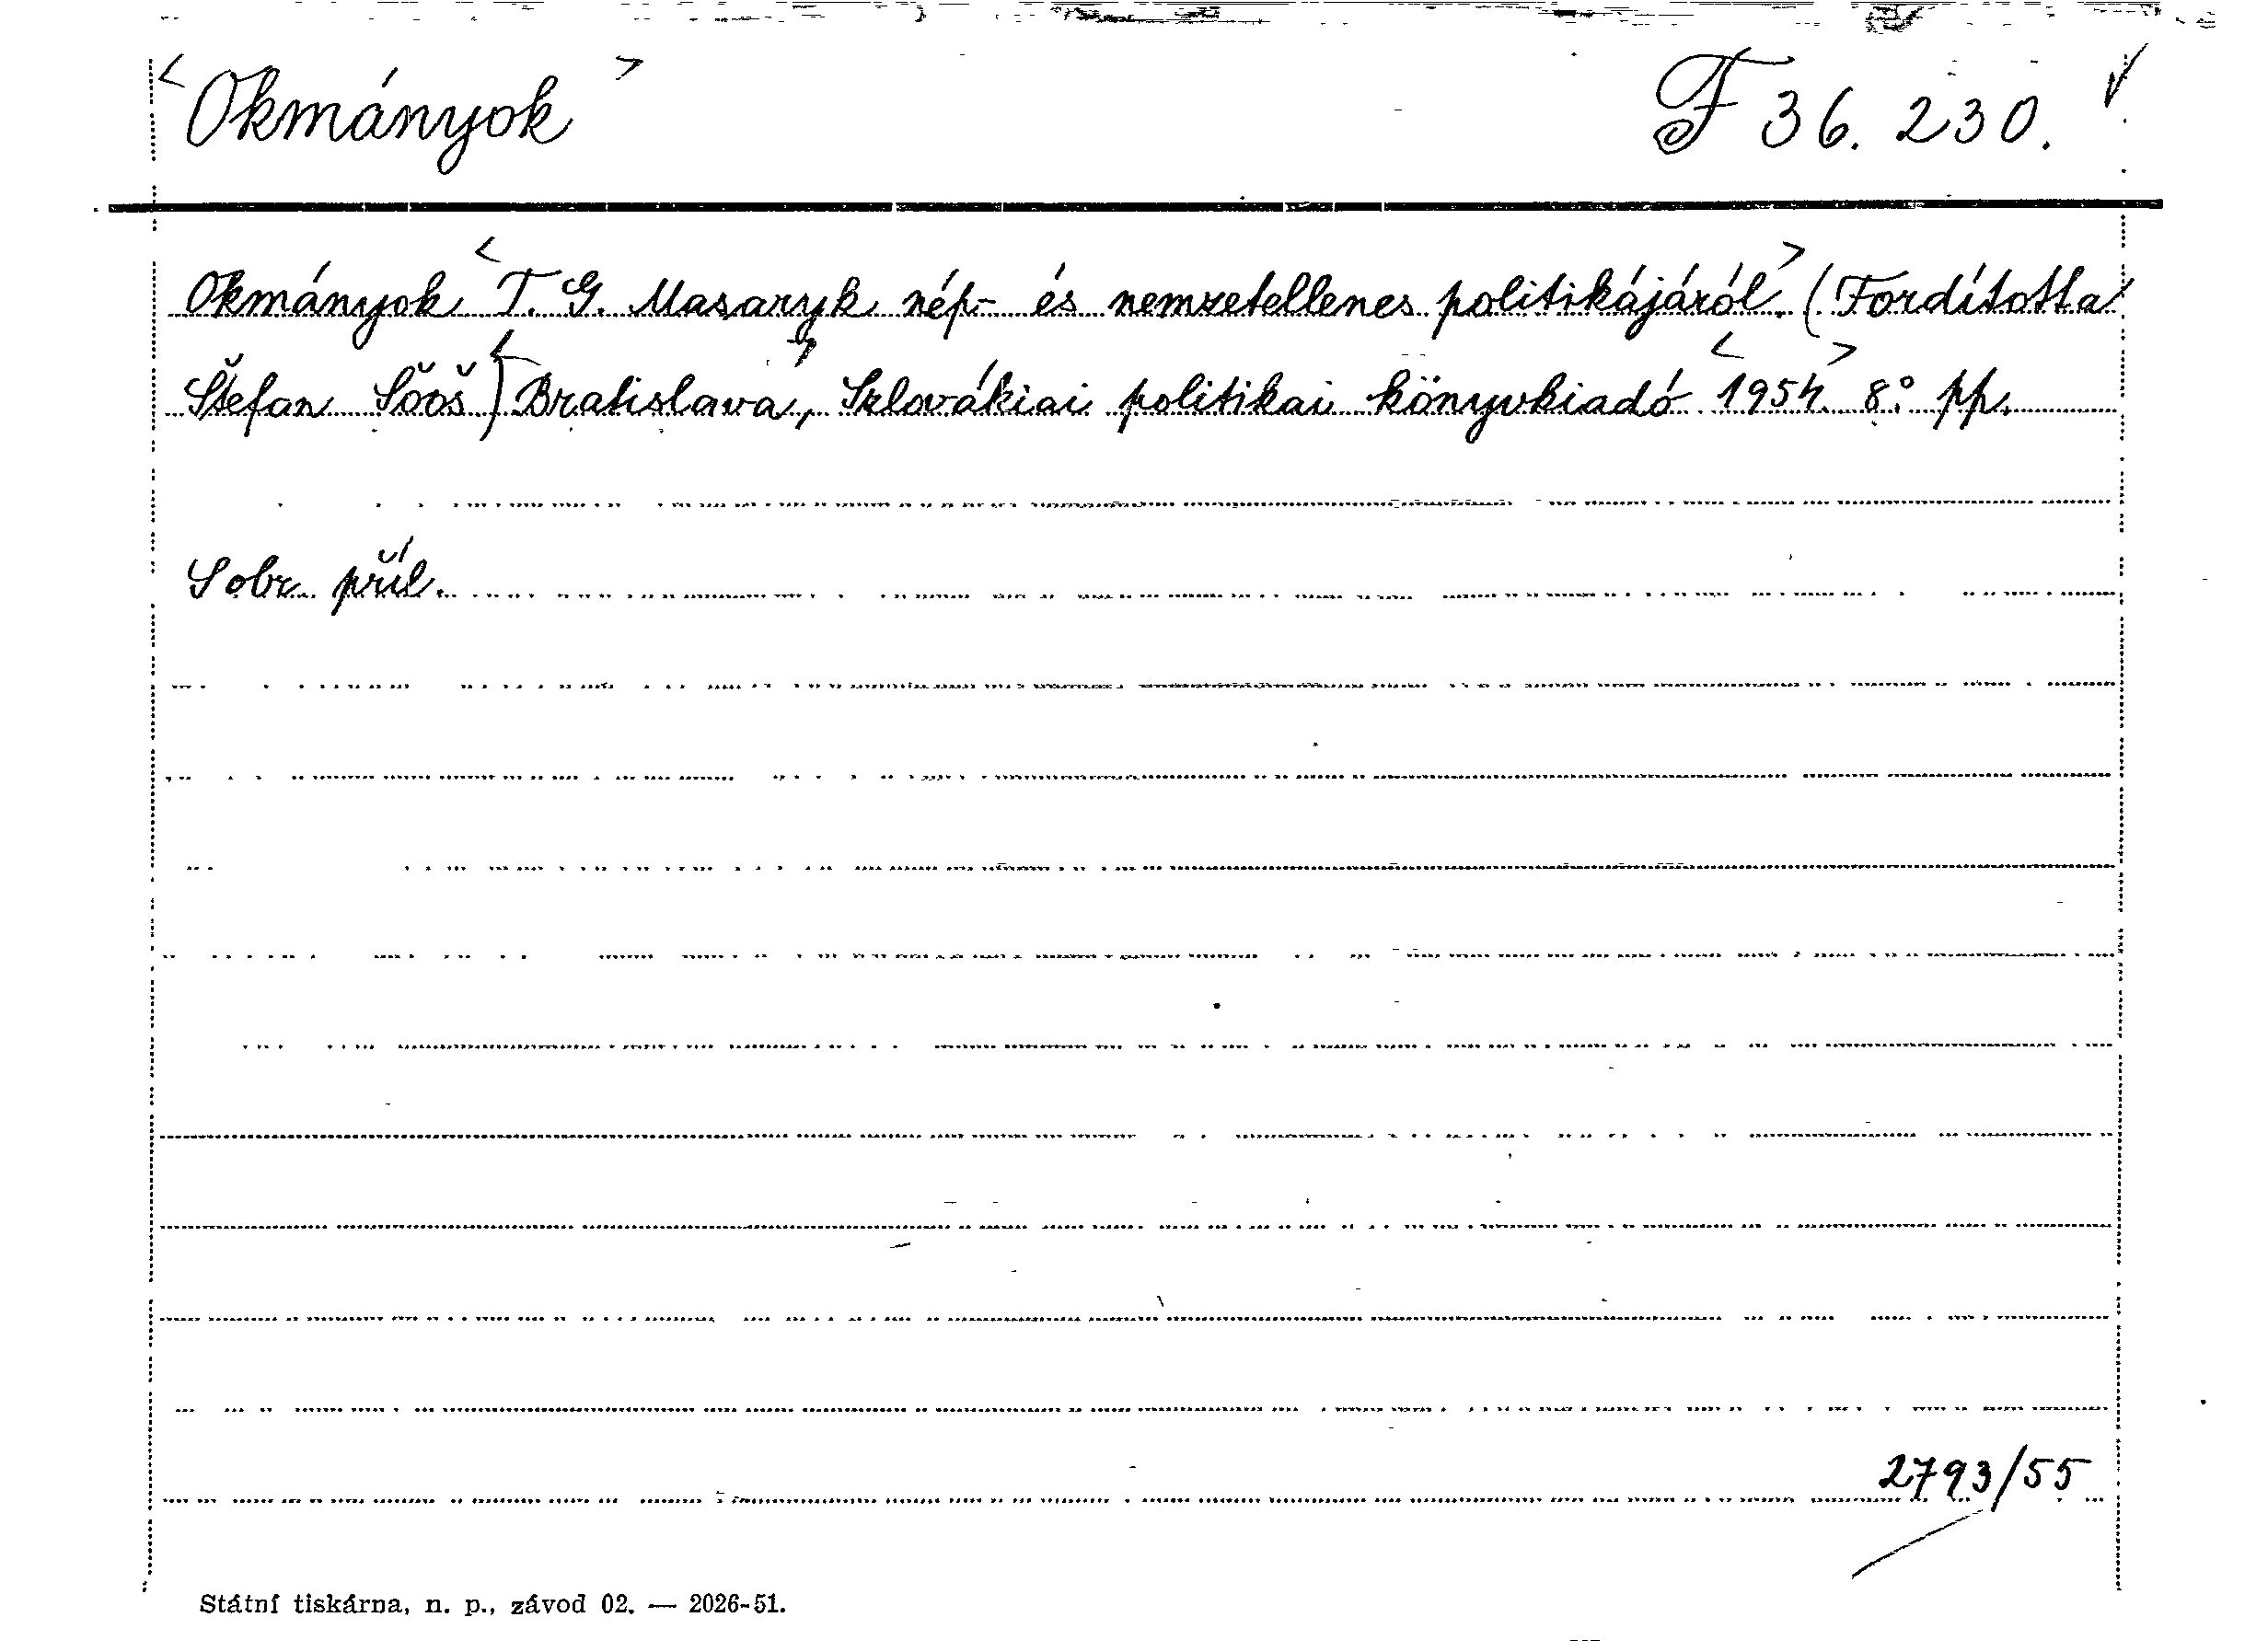 <Okmányok> F 36.230. ✓
Okmányok <T. G. Masaryk nép- és nemzetellenes politikájáról>. (Fordította
Štefan Šőöš) <Bratislava>, Szlovákiai politikai könyvkiadó <1954>. 8.° pp.
S obr. příl.
2793/55
Státní tiskárna, n. p., závod 02. — 2026-51.